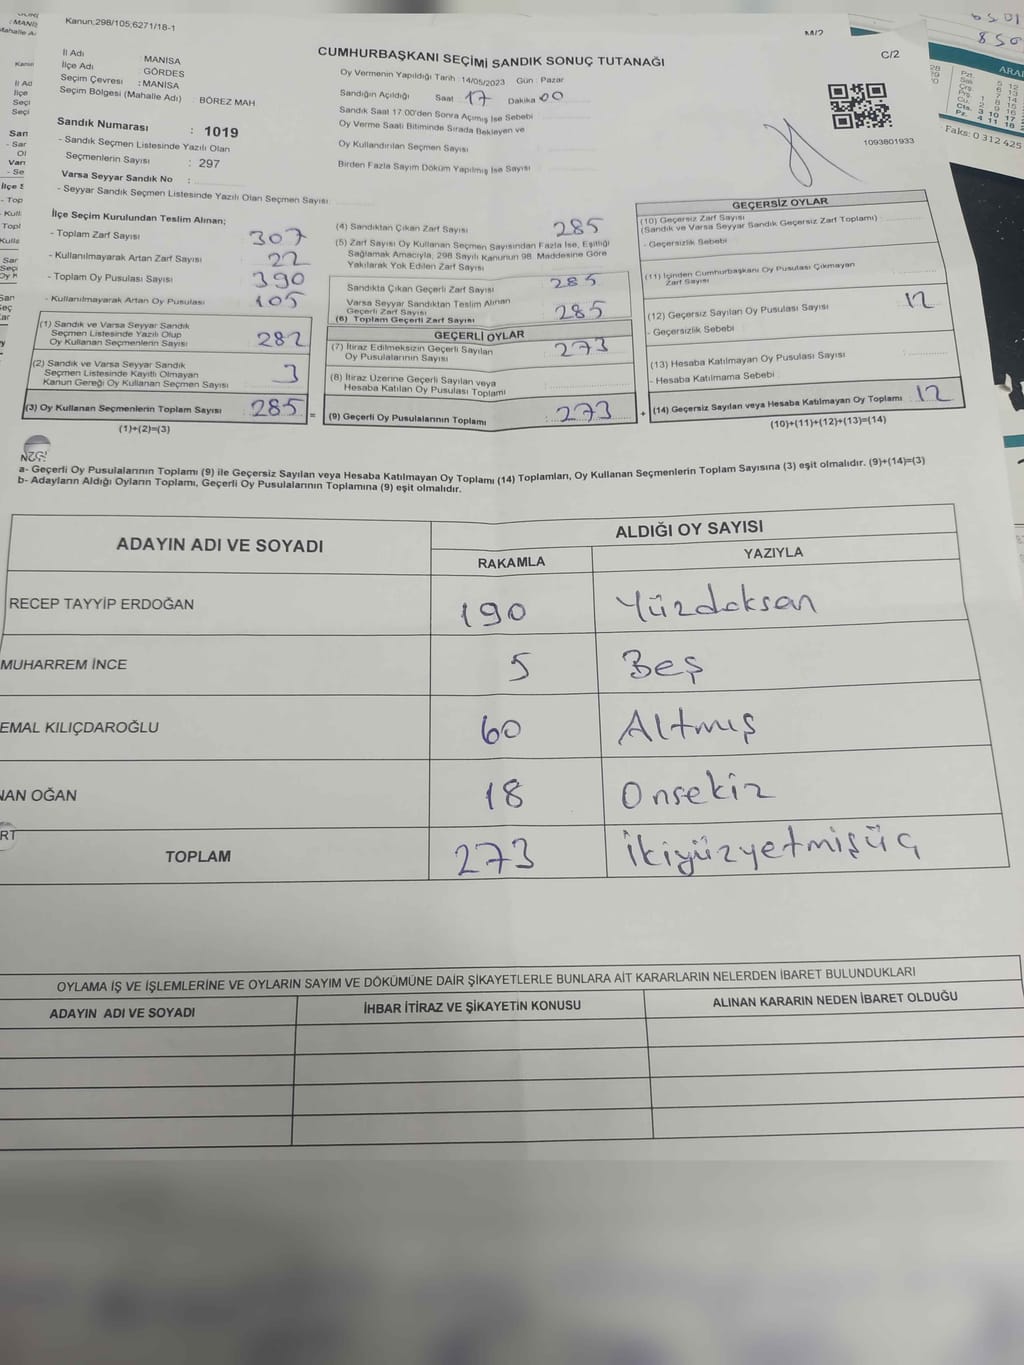 Kanun;298/105;6271/18-1
C/2
CUMHURBAŞKANI SEÇİMİ SANDIK SONUÇ TUTANAĞI
İl Adı : MANISA
İlçe Adı : GÖRDES
Seçim Çevresi : MANISA
Seçim Bölgesi (Mahalle Adı) BÖREZ MAH
Sandık Numarası : 1019
- Sandık Seçmen Listesinde Yazılı Olan
Seçmenlerin Sayısı : 297
Varsa Seyyar Sandık No :
- Seyyar Sandık Seçmen Listesinde Yazılı Olan Seçmen Sayısı:
Oy Vermenin Yapıldığı Tarih : 14/05/2023 Gün : Pazar
Sandığın Açıldığı Saat 17 Dakika 00
Sandık Saat 17:00'den Sonra Açımış İse Sebebi
Oy Verme Saati Bitiminde Sırada Bekleyen ve
Oy Kullandırılan Seçmen Sayısı
Birden Fazla Sayım Döküm Yapılmış İse Sayısı
1093801933
Faks: 0 312 425
İlçe Seçim Kurulundan Teslim Alınan;
- Toplam Zarf Sayısı 307
- Kullanılmayarak Artan Zarf Sayısı 22
- Toplam Oy Pusulası Sayısı 390
- Kullanılmayarak Artan Oy Pusulası 105
(1) Sandık ve Varsa Seyyar Sandık
Seçmen Listesinde Yazılı Olup
Oy Kullanan Seçmenlerin Sayısı 282
(2) Sandık ve Varsa Seyyar Sandık
Seçmen Listesinde Kayıtlı Olmayan
Kanun Gereği Oy Kullanan Seçmen Sayısı 3
(3) Oy Kullanan Seçmenlerin Toplam Sayısı 285 =
(1)+(2)=(3)
(4) Sandıktan Çıkan Zarf Sayısı 285
(5) Zarf Sayısı Oy Kullanan Seçmen Sayısından Fazla İse, Eşitliği
Sağlamak Amacıyla, 298 Sayılı Kanunun 98. Maddesine Göre
Yakılarak Yok Edilen Zarf Sayısı
Sandıkta Çıkan Geçerli Zarf Sayısı 285
Varsa Seyyar Sandıktan Teslim Alınan
Geçerli Zarf Sayısı
(6) Toplam Geçerli Zarf Sayısı 285
GEÇERLİ OYLAR
(7) İtiraz Edilmeksizin Geçerli Sayılan
Oy Pusulalarının Sayısı 273
(8) İtiraz Üzerine Geçerli Sayılan veya
Hesaba Katılan Oy Pusulası Toplamı
(9) Geçerli Oy Pusulalarının Toplamı : 273 +
GEÇERSİZ OYLAR
(10) Geçersiz Zarf Sayısı
(Sandık ve Varsa Seyyar Sandık Geçersiz Zarf Toplamı)
- Geçersizlik Sebebi
(11) İçinden Cumhurbaşkanı Oy Pusulası Çıkmayan
Zarf Sayısı
(12) Geçersiz Sayılan Oy Pusulası Sayısı 12
- Geçersizlik Sebebi
(13) Hesaba Katılmayan Oy Pusulası Sayısı
- Hesaba Katılmama Sebebi :
(14) Geçersiz Sayılan veya Hesaba Katılmayan Oy Toplamı : 12
(10)+(11)+(12)+(13)=(14)
a- Geçerli Oy Pusulalarının Toplamı (9) ile Geçersiz Sayılan veya Hesaba Katılmayan Oy Toplamı (14) Toplamları, Oy Kullanan Seçmenlerin Toplam Sayısına (3) eşit olmalıdır. (9)+(14)=(3)
b- Adayların Aldığı Oyların Toplamı, Geçerli Oy Pusulalarının Toplamına (9) eşit olmalıdır.
ADAYIN ADI VE SOYADI
ALDIĞI OY SAYISI
RAKAMLA YAZIYLA
RECEP TAYYİP ERDOĞAN 190 Yüzdoksan
MUHARREM İNCE 5 Beş
EMAL KILIÇDAROĞLU 60 Altmış
NAN OĞAN 18 Onsekiz
TOPLAM 273 İkiyüzyetmişüç
OYLAMA İŞ VE İŞLEMLERİNE VE OYLARIN SAYIM VE DÖKÜMÜNE DAİR ŞİKAYETLERLE BUNLARA AİT KARARLARIN NELERDEN İBARET BULUNDUKLARI
ADAYIN ADI VE SOYADI İHBAR İTİRAZ VE ŞİKAYETİN KONUSU ALINAN KARARIN NEDEN İBARET OLDUĞU